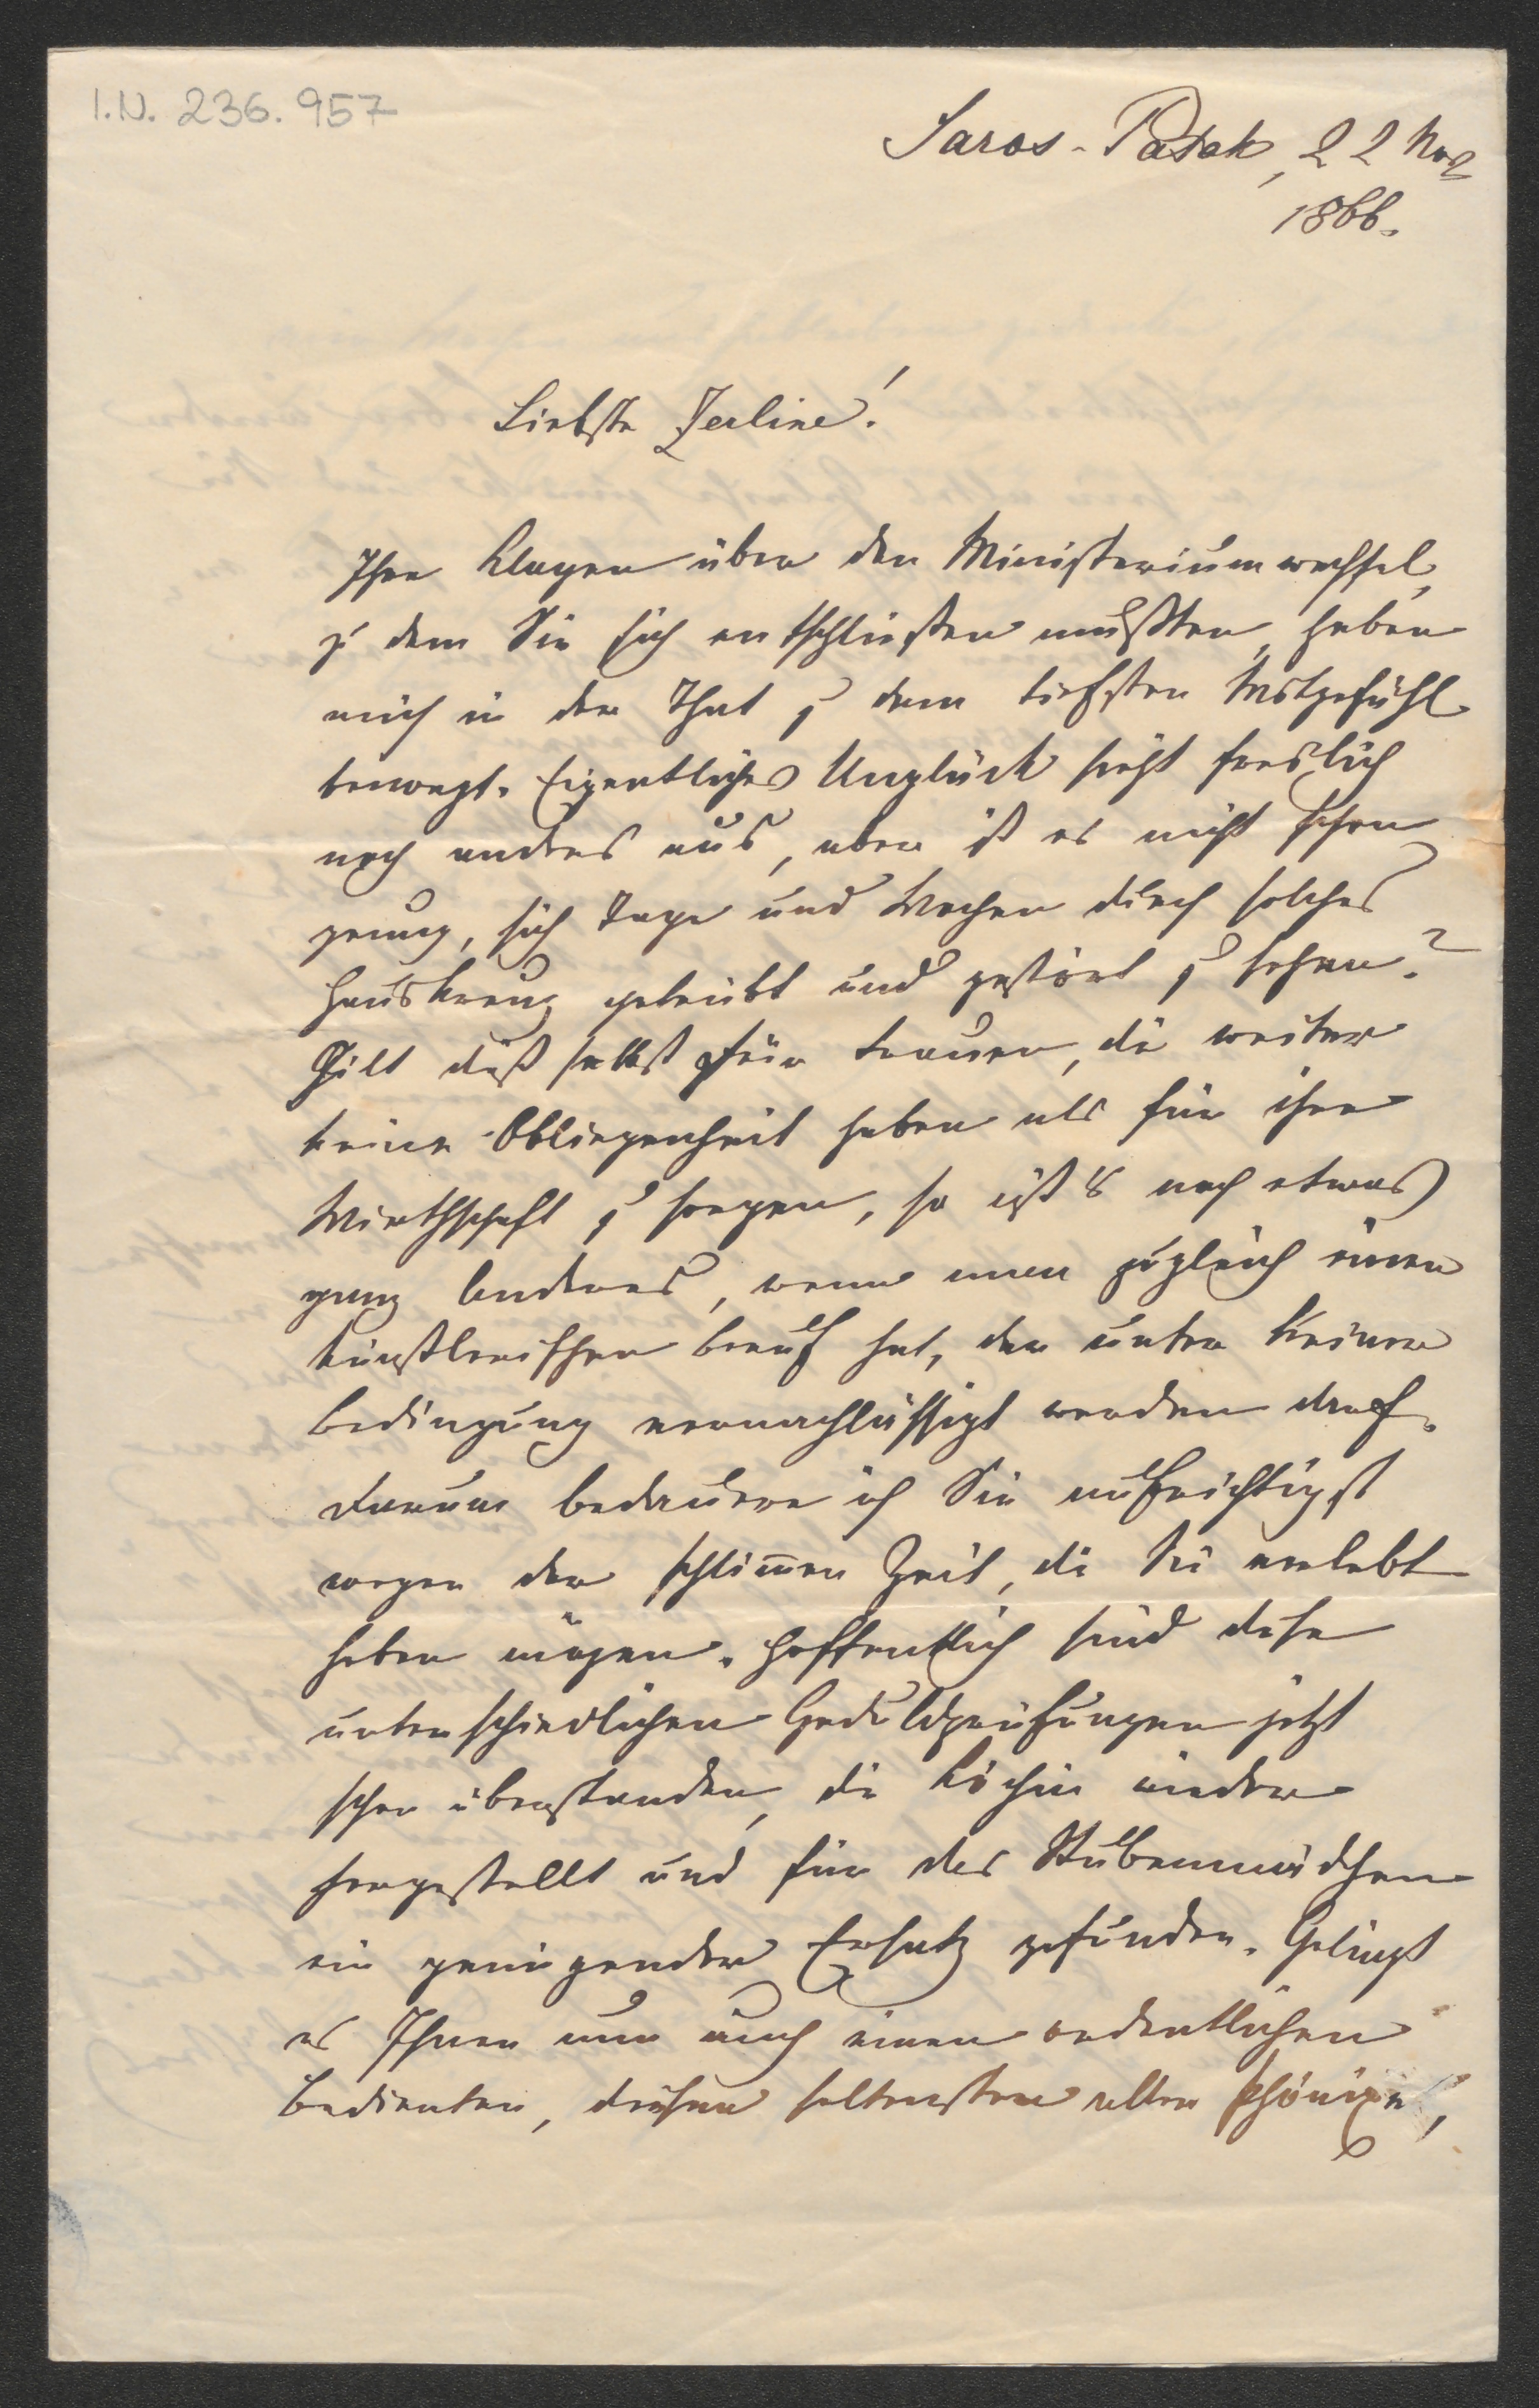 I.N. 236.957
Saros-Patak, 22 Nov
1866.
Liebste Zerline!
Ihre Klagen über den Ministeriumwechsel,
zu dem Sie sich entschließen mußten, haben
mich in der That zu dem tiefsten Mitgefühl
bewegt. Eigentliches Unglück sieht freilich
noch anders aus, aber ist es nicht schon
genug, sich Tage und Wochen durch solches
Hauskreuz getrübt und gestört zu sehen?
Gilt dieß selbst für Frauen, die weiter
keine Obliegenheit haben als für ihre
Wirthschaft zu sorgen, so ist's noch etwas
ganz Anderes, wenn man zugleich einen
künstlerischen Beruf hat, der unter keiner
Bedingung vernachlässigt werden darf.
Darum bedauere ich Sie aufrichtigst
wegen der schlim̅en Zeit, die Sie verlebt
haben mögen. Hoffentlich sind diese
unterschiedlichen Geduldprüfungen jetzt
schon überstanden, die Köchin wieder
hergestellt und für das Stubenmädchen
ein genügender Ersatz gefunden. Gelingt
es Ihnen nun auch einen ordentlichen
Bedienten, diesen seltensten aller Phönixe,